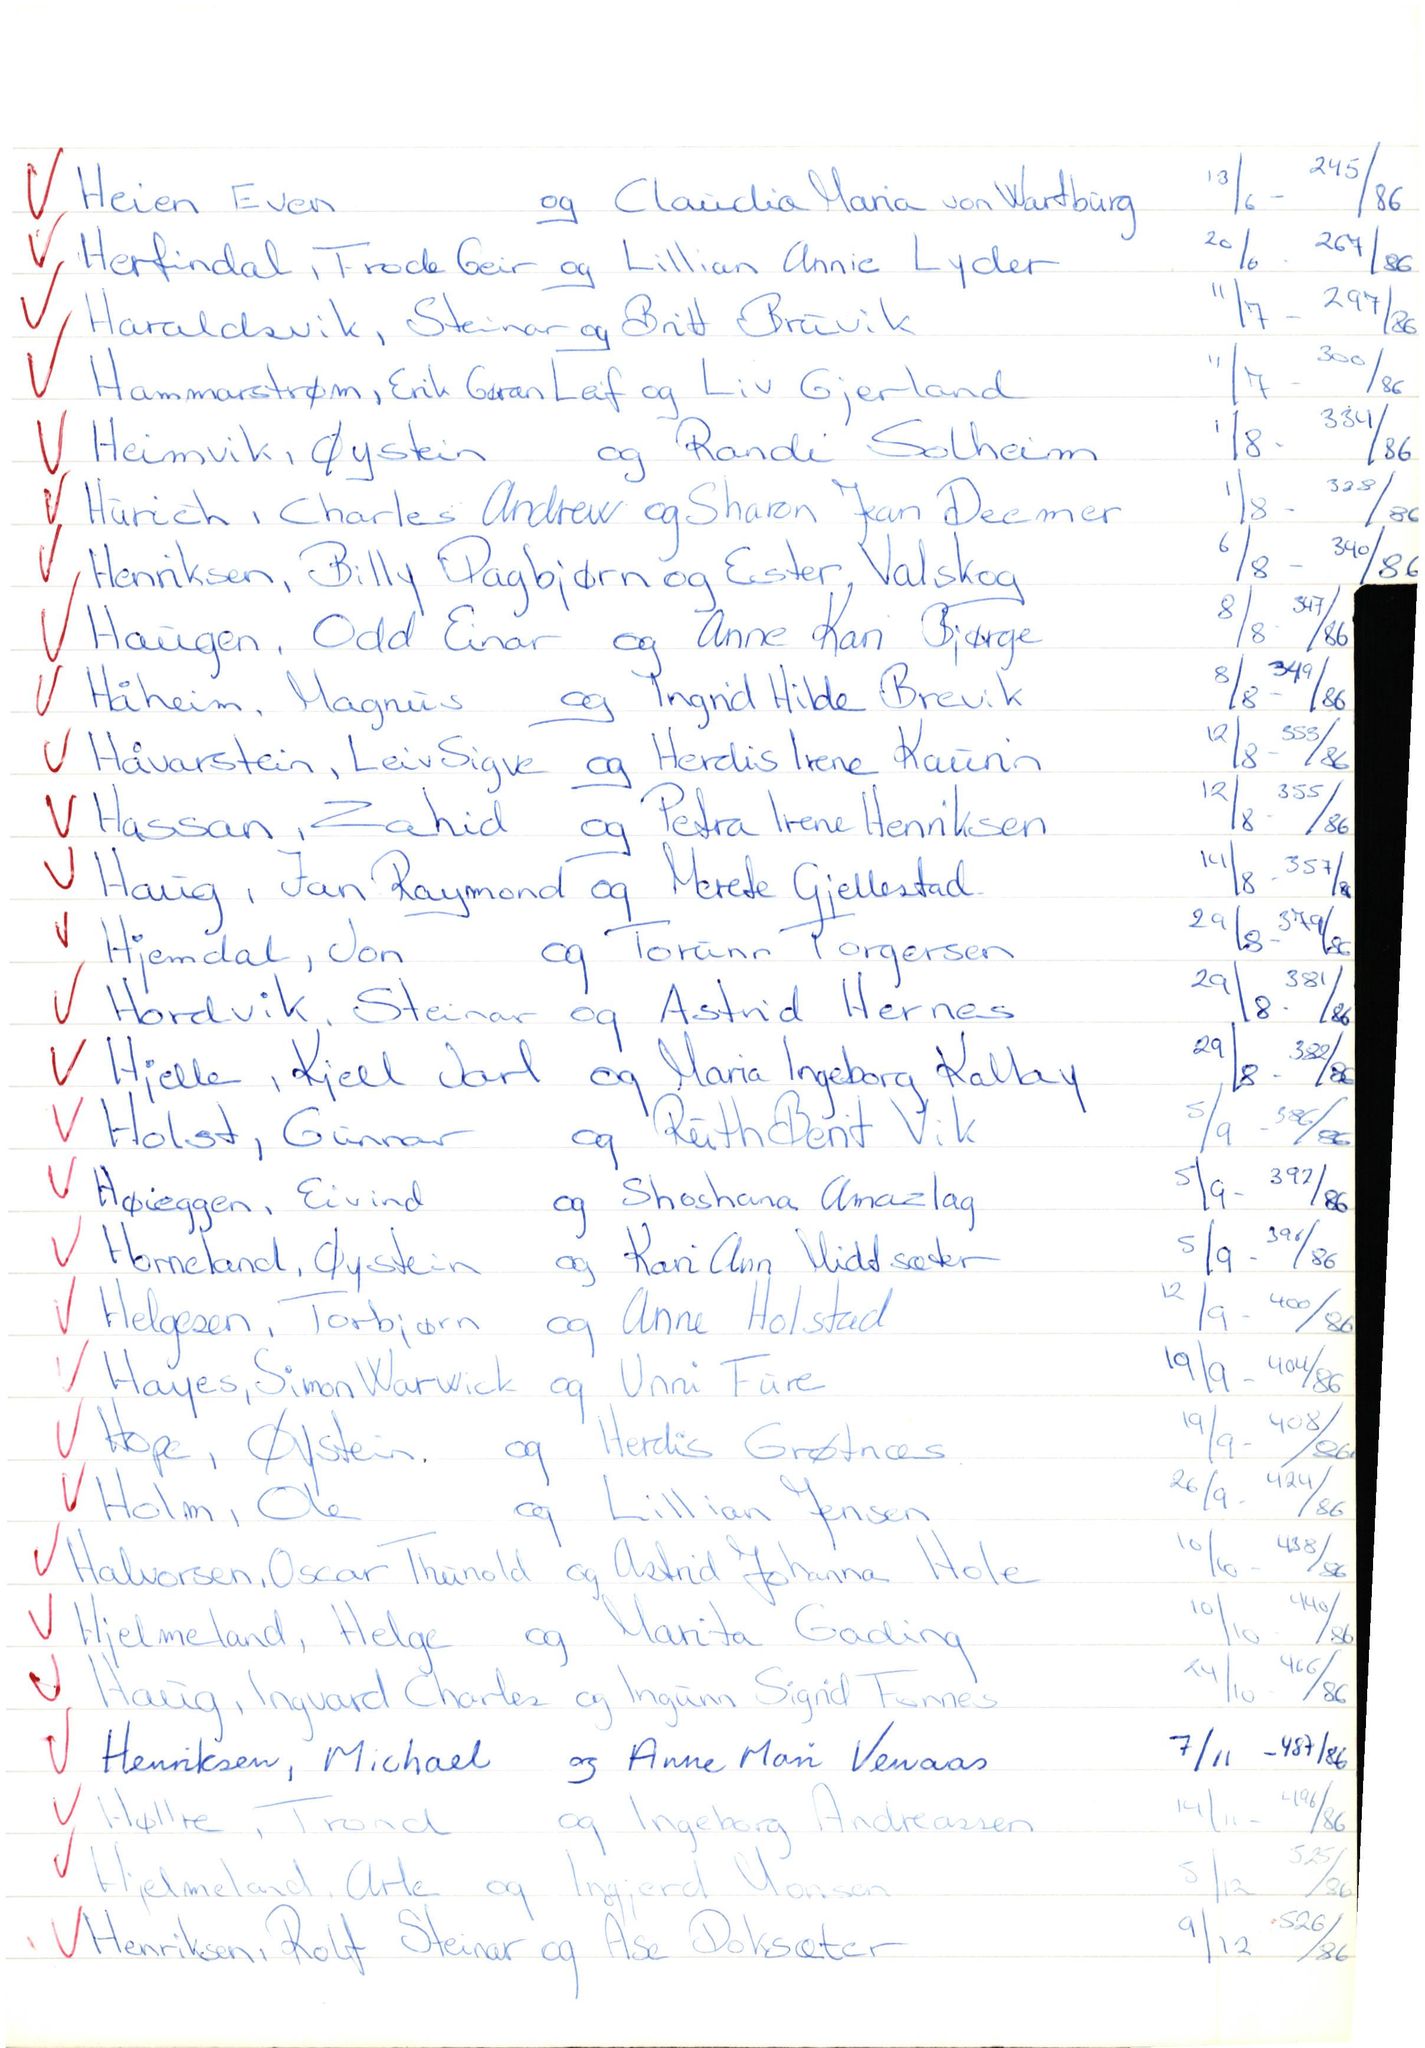 Heien Even og Claudia Maria von Wartburg 13/6 - 245/86
Herfindal, Frode Geir og Lillian Annie Lyder 20/6 - 267/86
Haraldsvik, Steinar og Britt Bruvik 11/7 - 297/86
Hammarstrøm, Erik Gøran Leif og Liv Gjerland 11/7 - 300/86
Heimvik, Øystein og Randi Solheim 1/8 - 334/86
Hurich, Charles Andrew og Sharon Jean Deemer 1/8 - 328/86
Henriksen, Billy Dagbjørn og Ester Valskog 6/8 - 340/86
Haugen, Odd Einar og Anne Kari Bjørge 8/8 - 347/86
Håheim, Magnus og Ingrid Hilde Brevik 8/8 - 349/86
Håvarstein, Leiv Sigve og Herdis Irene Kaurin 12/8 - 353/86
Hassan, Zahid og Petra Irene Henriksen 12/8 - 355/86
Haug, Jan Raymond og Merete Gjellestad 14/8 - 357/86
Hjemdal, Jon og Torunn Torgersen 29/8 - 379/86
Hordvik, Steinar og Astrid Hernes 29/8 - 381/86
Hjelle, Kjell Jarl og Maria Ingeborg Kallay 29/8 - 382/86
Holst, Gunnar og Ruth Berit Vik 5/9 - 386/86
Høieggen, Eivind og Shoshana Amazlag 5/9 - 392/86
Horneland, Øystein og Kari Ann Midtsæter 5/9 - 396/86
Helgesen, Torbjørn og Anne Holstad 12/9 - 400/86
Hayes, Simon Warwick og Unni Fure 19/9 - 404/86
Hope, Øystein. og Herdis Grøtnæs 19/9 - 408/86
Holm, Ole og Lillian Jensen 26/9 - 424/86
Halvorsen, Oscar Thunold og Astrid Johanna Hole 10/10 - 438/86
Hjelmeland, Helge og Marita Gading 10/10 - 440/86
Haug, Ingvard Charles og Ingunn Sigrid Fonnes 24/10 - 466/86
Henriksen, Michael og Anne Mari Venaas 7/11 - 487/86
Trond og Ingeborg Andreassen 14/11 - 496/86
Hjelmeland, Atle og Ingjerd Monsen 5/12 525/86
Henriksen, Rolf Steinar og Åse Doksæter 9/12 - 526/86